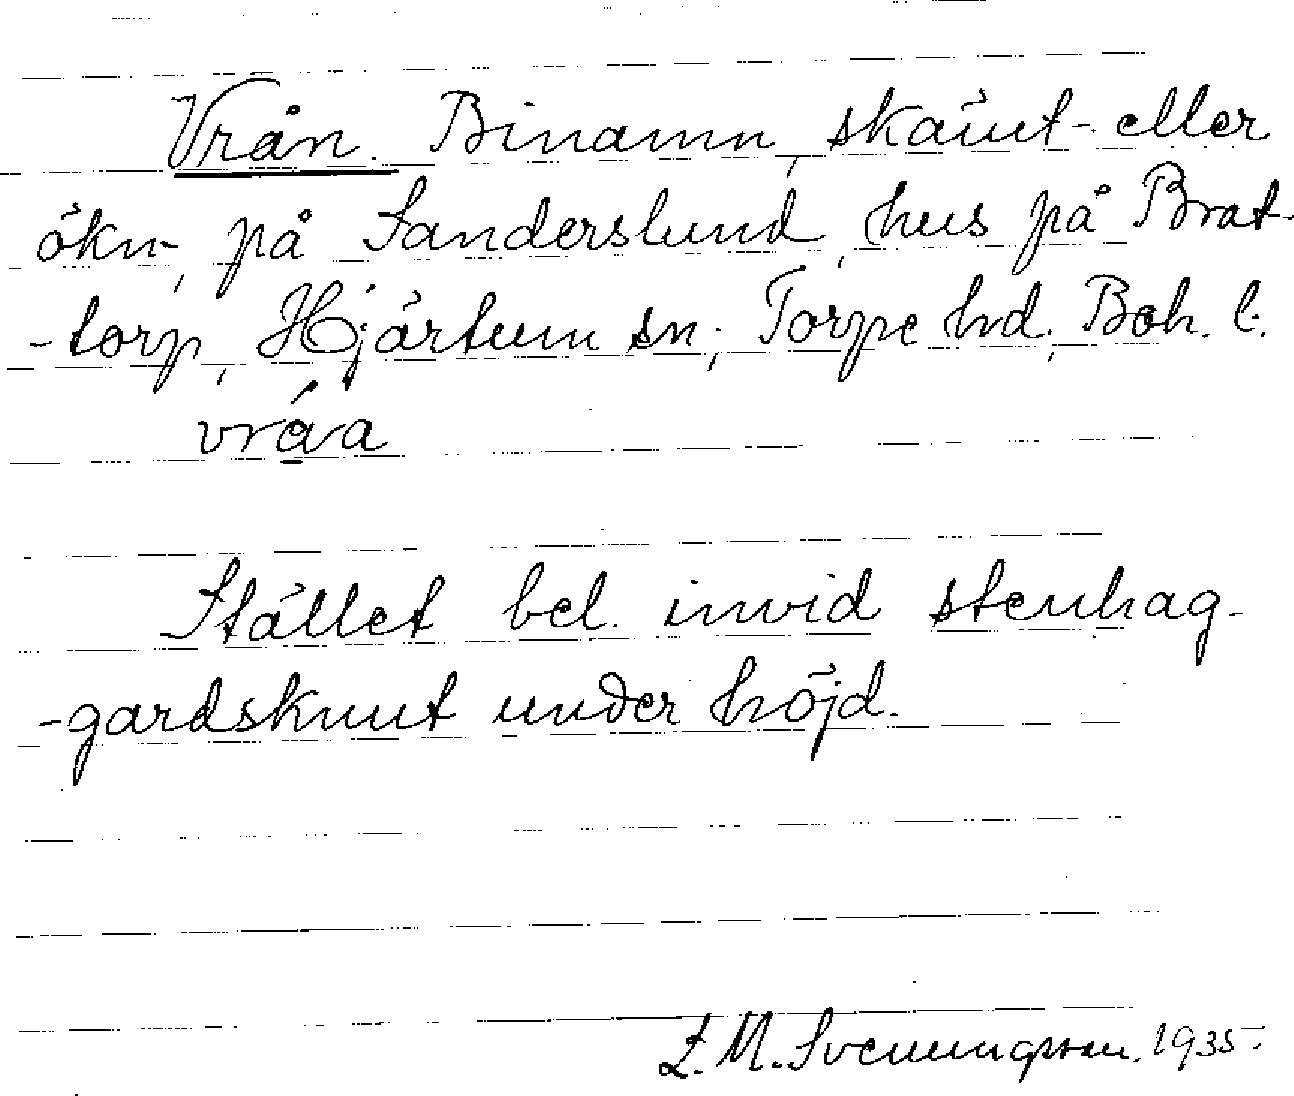 Vrån. Binamn, skämt- eller
ökn-, på Sanderslund, hus på Brat-
-torp, Hjärtum sn; Torpe hd; Boh. l.
vråa
Stället bel. invid stenhag-
-gardsknut under höjd.
E. M. Svenungsson. 1935.